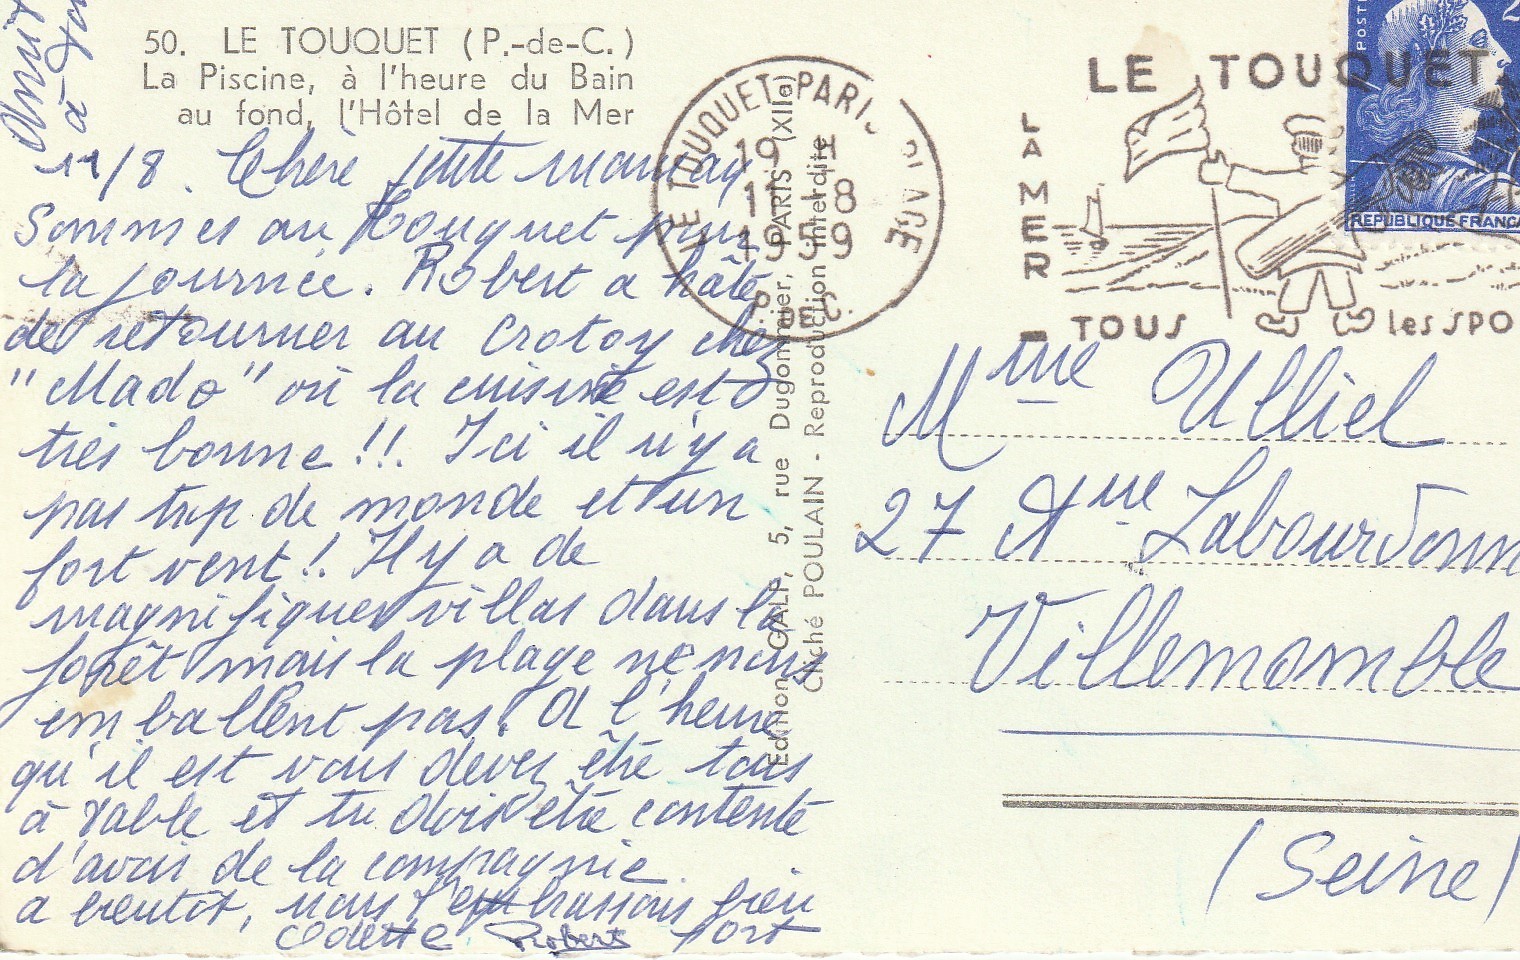 50. LE TOUQUET (P.-de-C.)
La Piscine, à l'heure du Bain
au fond, l'Hôtel de la Mer
11/8. Chère petite maman
Sommes au Touquet pour
la journée. Robert a hâte
de retourner au Crotoy chez
"Mado" où la cuisine est
très bonne!!. Ici il n'y a
pas trop de monde et un
fort vent!. Il y a de
magnifiques villas dans la
forêt mais la plage ne nous
emballent pas. A l'heure
qu'il est vous devez être tous
à table et tu dois être contente
d'avoir de la compagnie.
a bientôt, nous t'embrassons bien
fort
Odette Robert
à
Edition GALP, 5, rue Dugommier, PARIS (XIIe)
Cliché POULAIN - Reproduction interdite
LE TOUQUET-PARIS PLAGE
19 H
11 - 8
1959
P. DE C.
LE TOUQUET
LA MER
TOUS les SPO
POSTE
REPUBLIQUE FRANÇA
Mme Ulliel
27 Ave Labourdonn
Villemomble
(Seine)